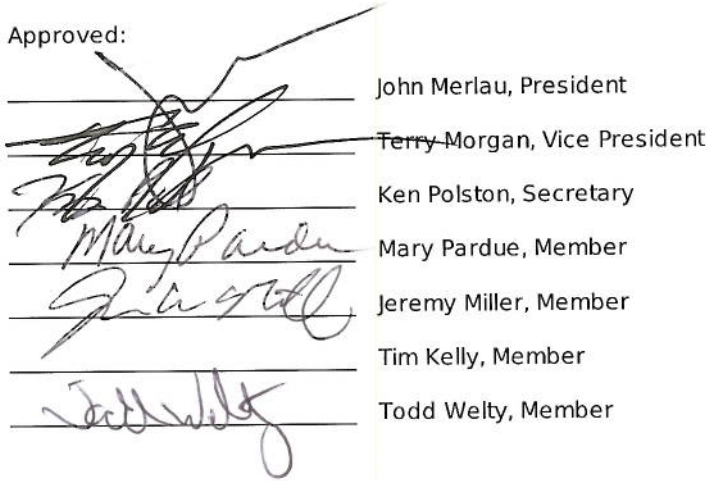 Approved:
John Merlau, President
Terry Morgan, Vice President
Ken Polston, Secretary
Mary Pardue
Mary Pardue, Member
Jeremy Miller, Member
Tim Kelly, Member
Todd Welty
Todd Welty, Member